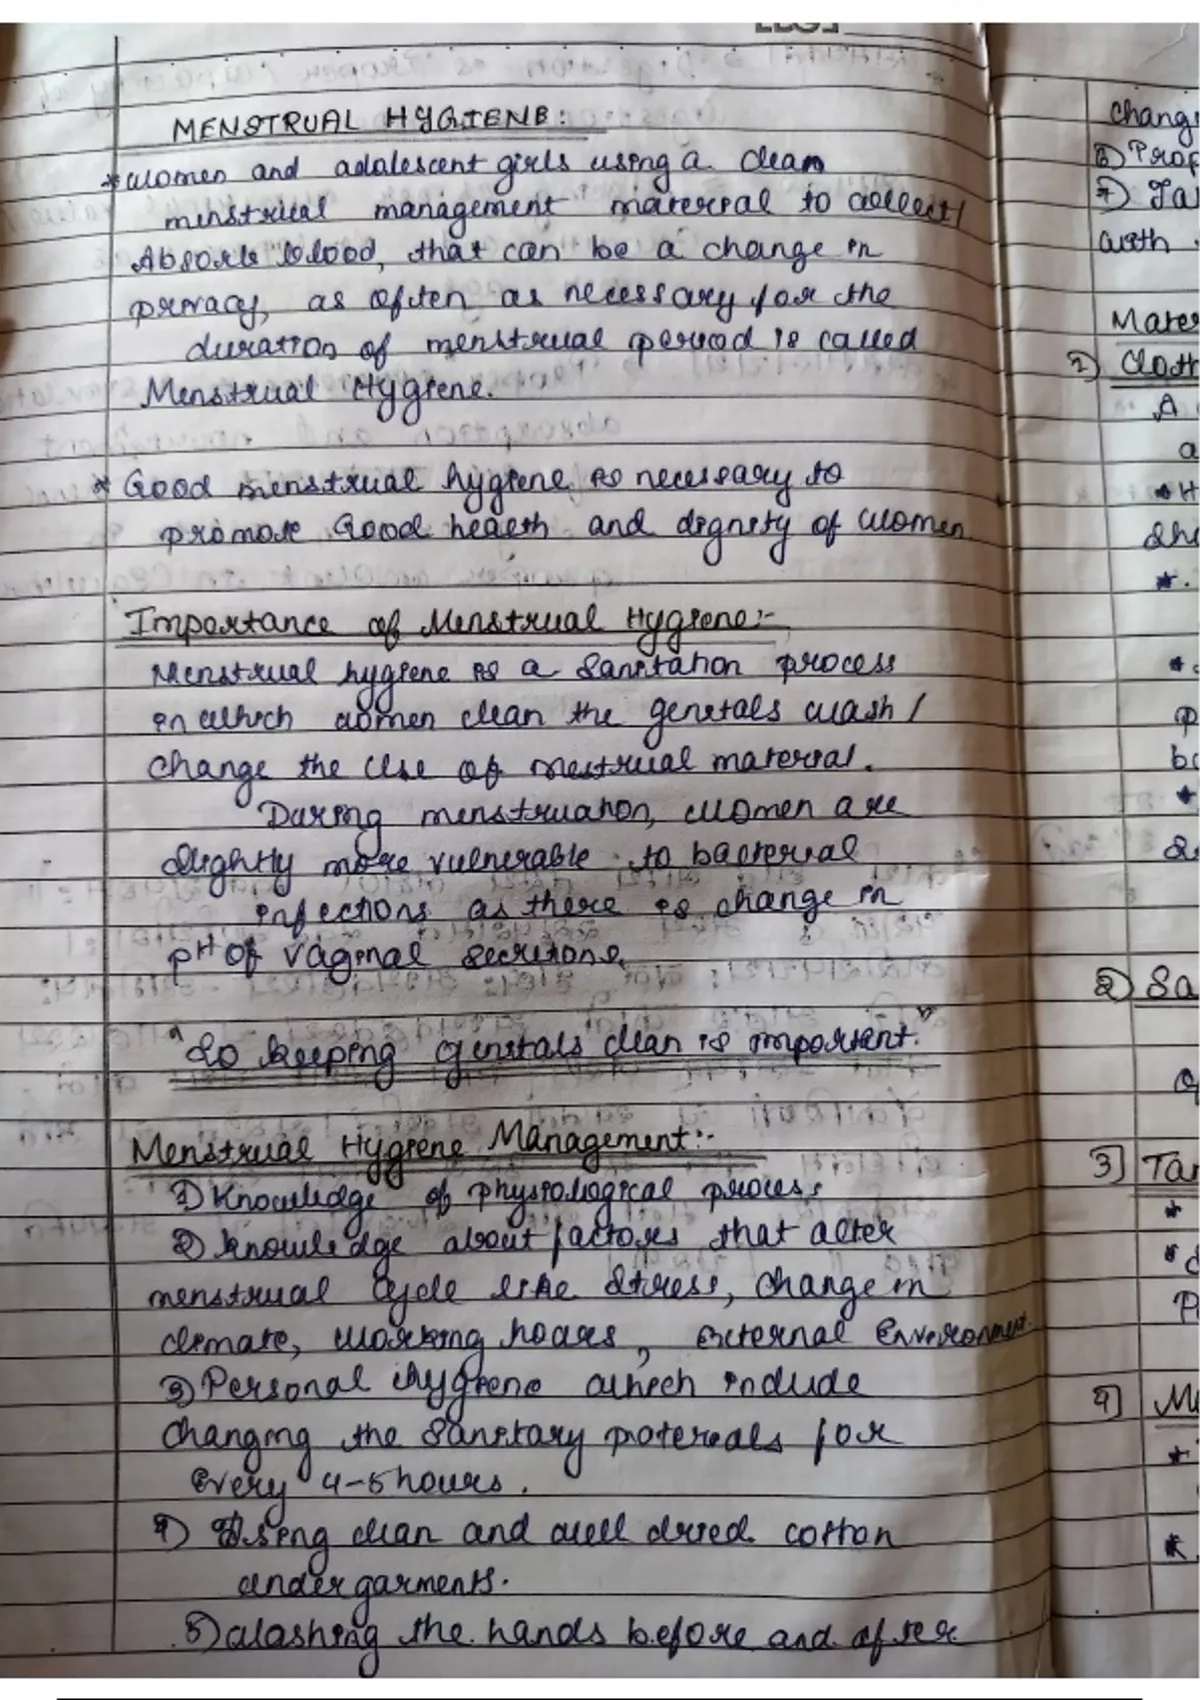 MENSTRUAL HYGIENE:
* women and adolescent girls using a clean
menstrual management material to collect/
Absorb blood, that can be a change in
privacy, as often as necessary for the
duration of menstrual period is called
Menstrual Hygiene.
* Good menstrual hygiene is necessary to
promote Good health and dignity of women
Importance of Menstrual Hygiene:-
Menstrual hygiene is a Sanitation process
in which women clean the genitals wash /
change the use of mestrual material.
During menstruation, women are
slightly more vulnerable to bacterial
infections as there is change in
pH of vaginal secretions.
"So keeping genitals clean is important."
Menstrual Hygiene Management:-
1) Knowledge of physiological process
2) knowledge about factors that alter
menstrual cycle like stress, change in
climate, working hours, external Environment.
3) Personal hygiene which include
changing the Sanitary materials for
every 4-5 hours.
4) Using clean and well dried cotton
under garments.
5) Washing the hands before and after
chang
6) Prop
7) Ta
with
Mater
1) Cloth
A
a
* H
*
*
*
2) Sa
3] Ta
*
*
4]
*
*